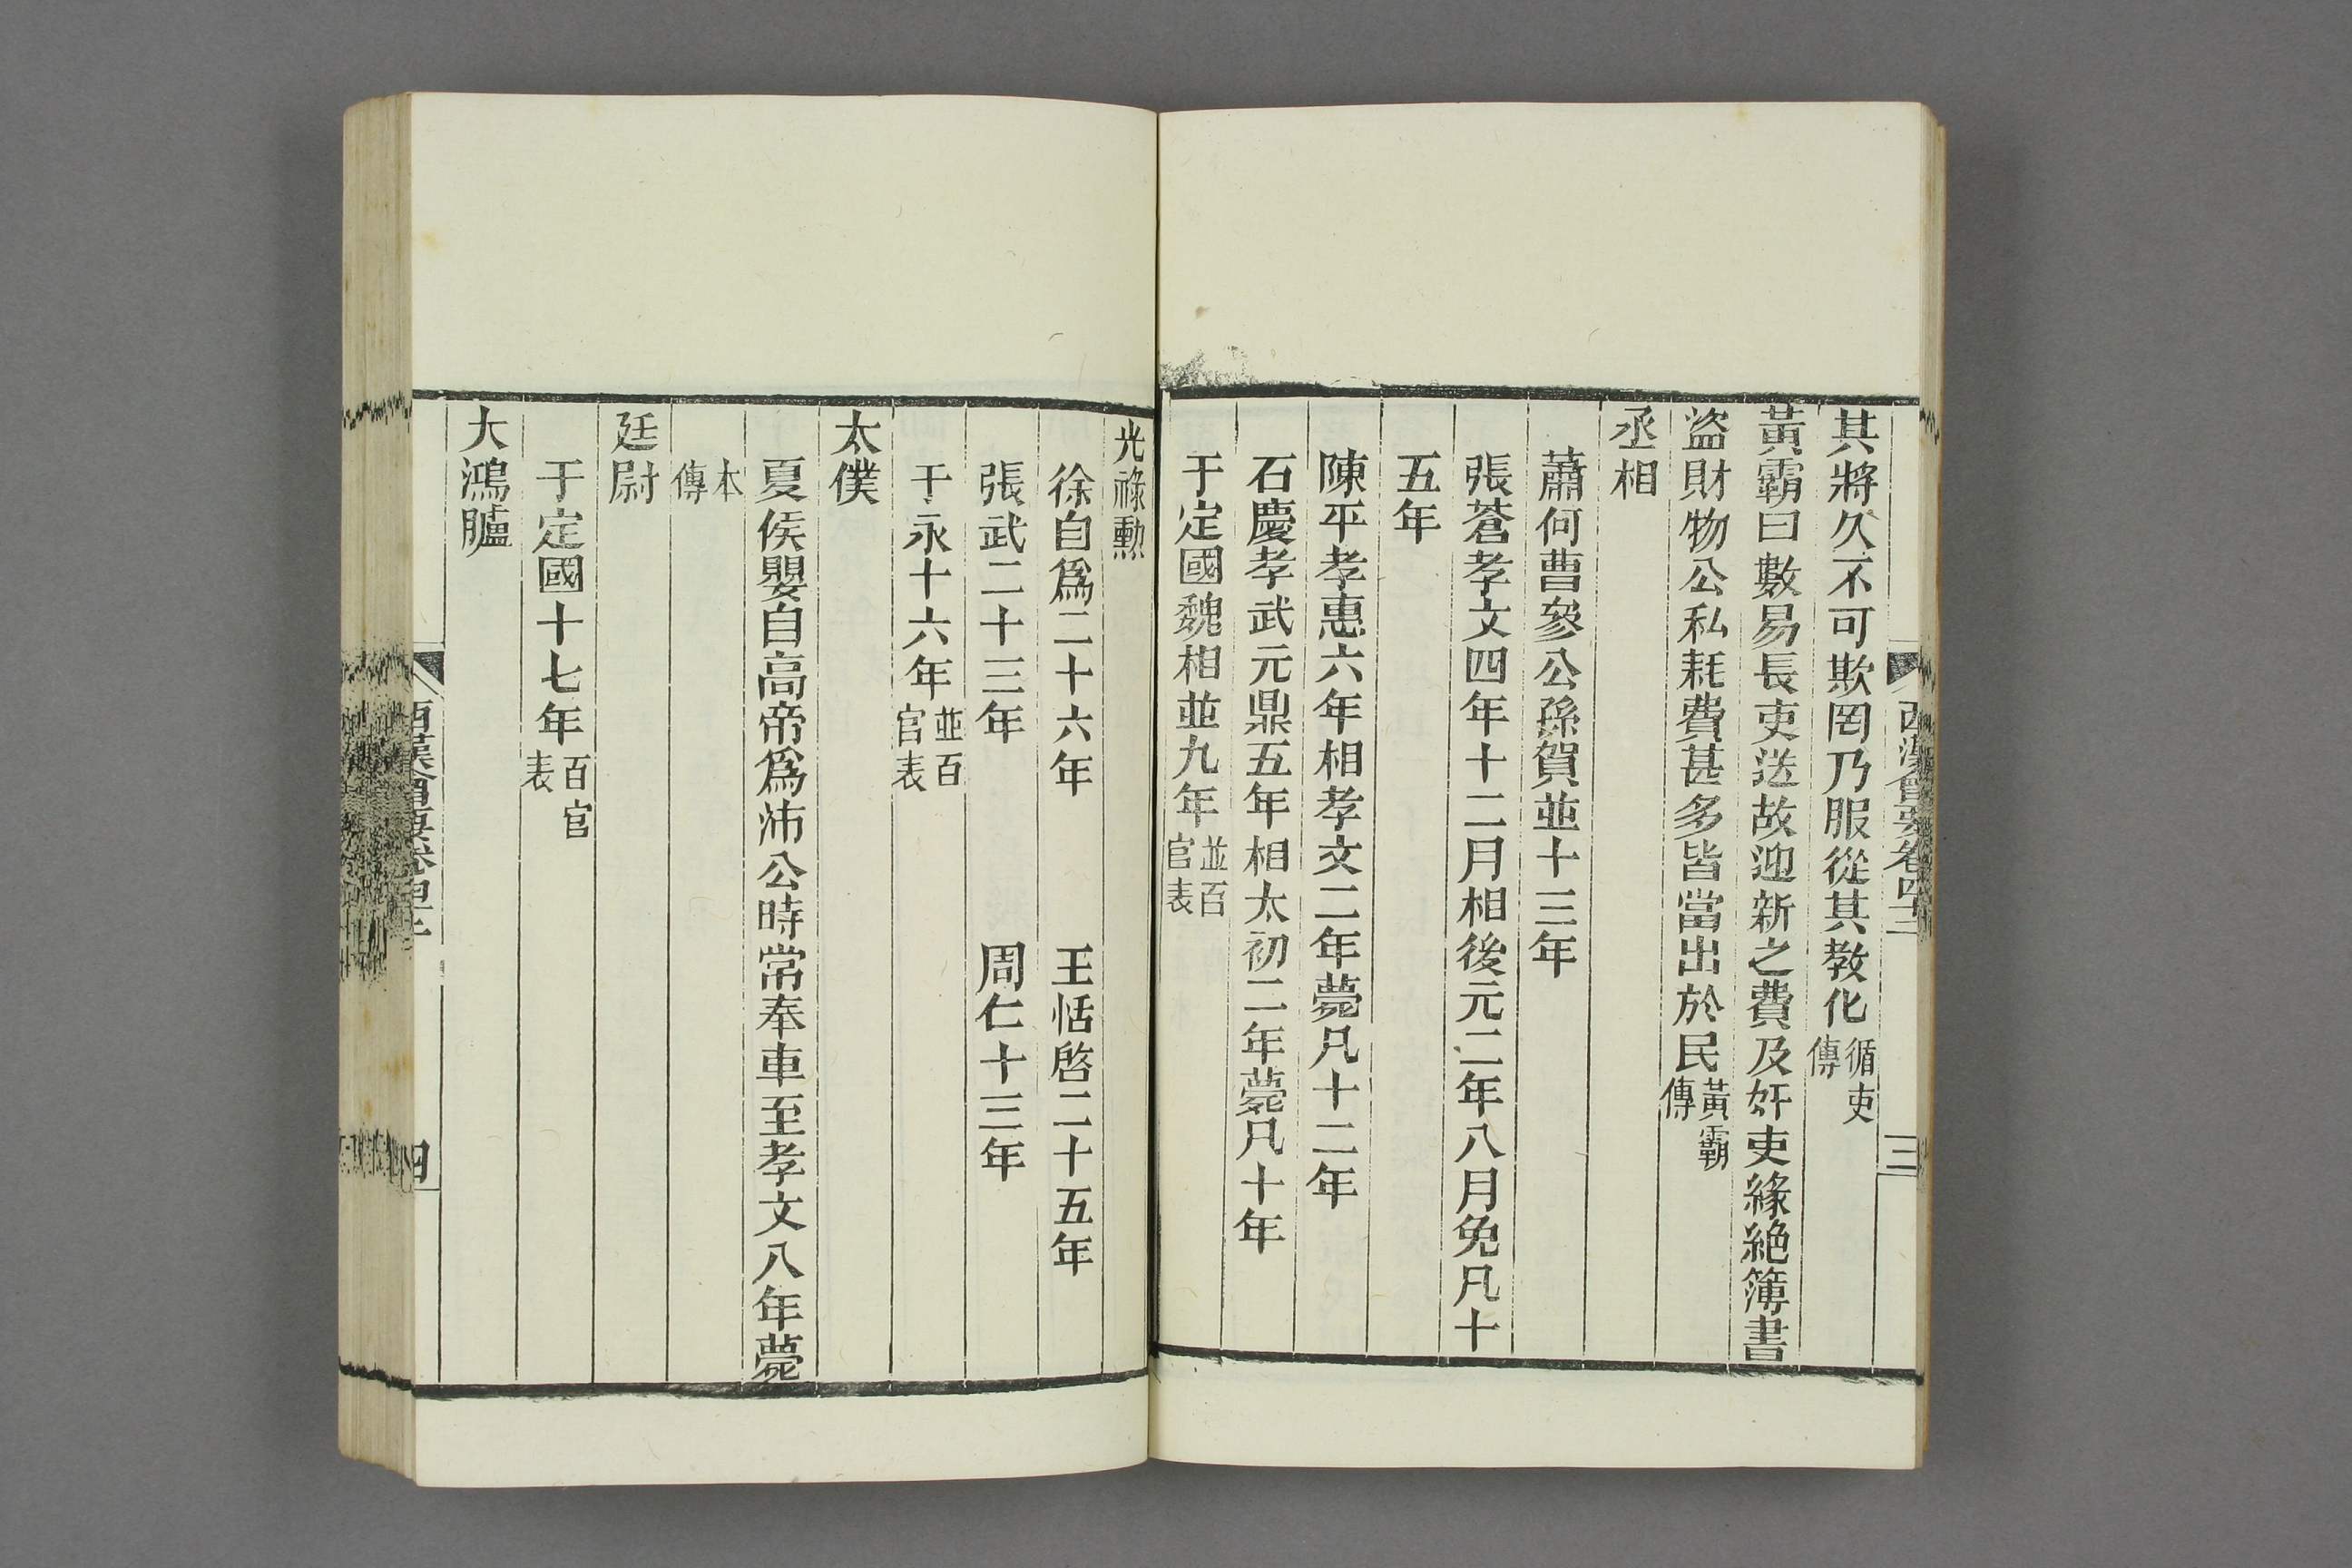 西漢會要卷四十二
三
其將久不可欺罔乃服從其教化循吏傳
黃霸曰數易長吏送故迎新之費及奸吏緣絕簿書
盜財物公私耗費甚多皆當出於民黃霸傳
丞相
蕭何曹參公孫賀並十三年
張蒼孝文四年十二月相後元二年八月免凡十
五年
陳平孝惠六年相孝文二年薨凡十二年
石慶孝武元鼎五年相太初二年薨凡十年
于定國魏相並九年並百官表
光祿勳
徐自爲二十六年 王恬啓二十五年
張武二十三年 周仁十三年
于永十六年並百官表
太僕
夏侯嬰自高帝爲沛公時常奉車至孝文八年薨
本傳
廷尉
于定國十七年百官表
大鴻臚
西漢會要卷四十二
四